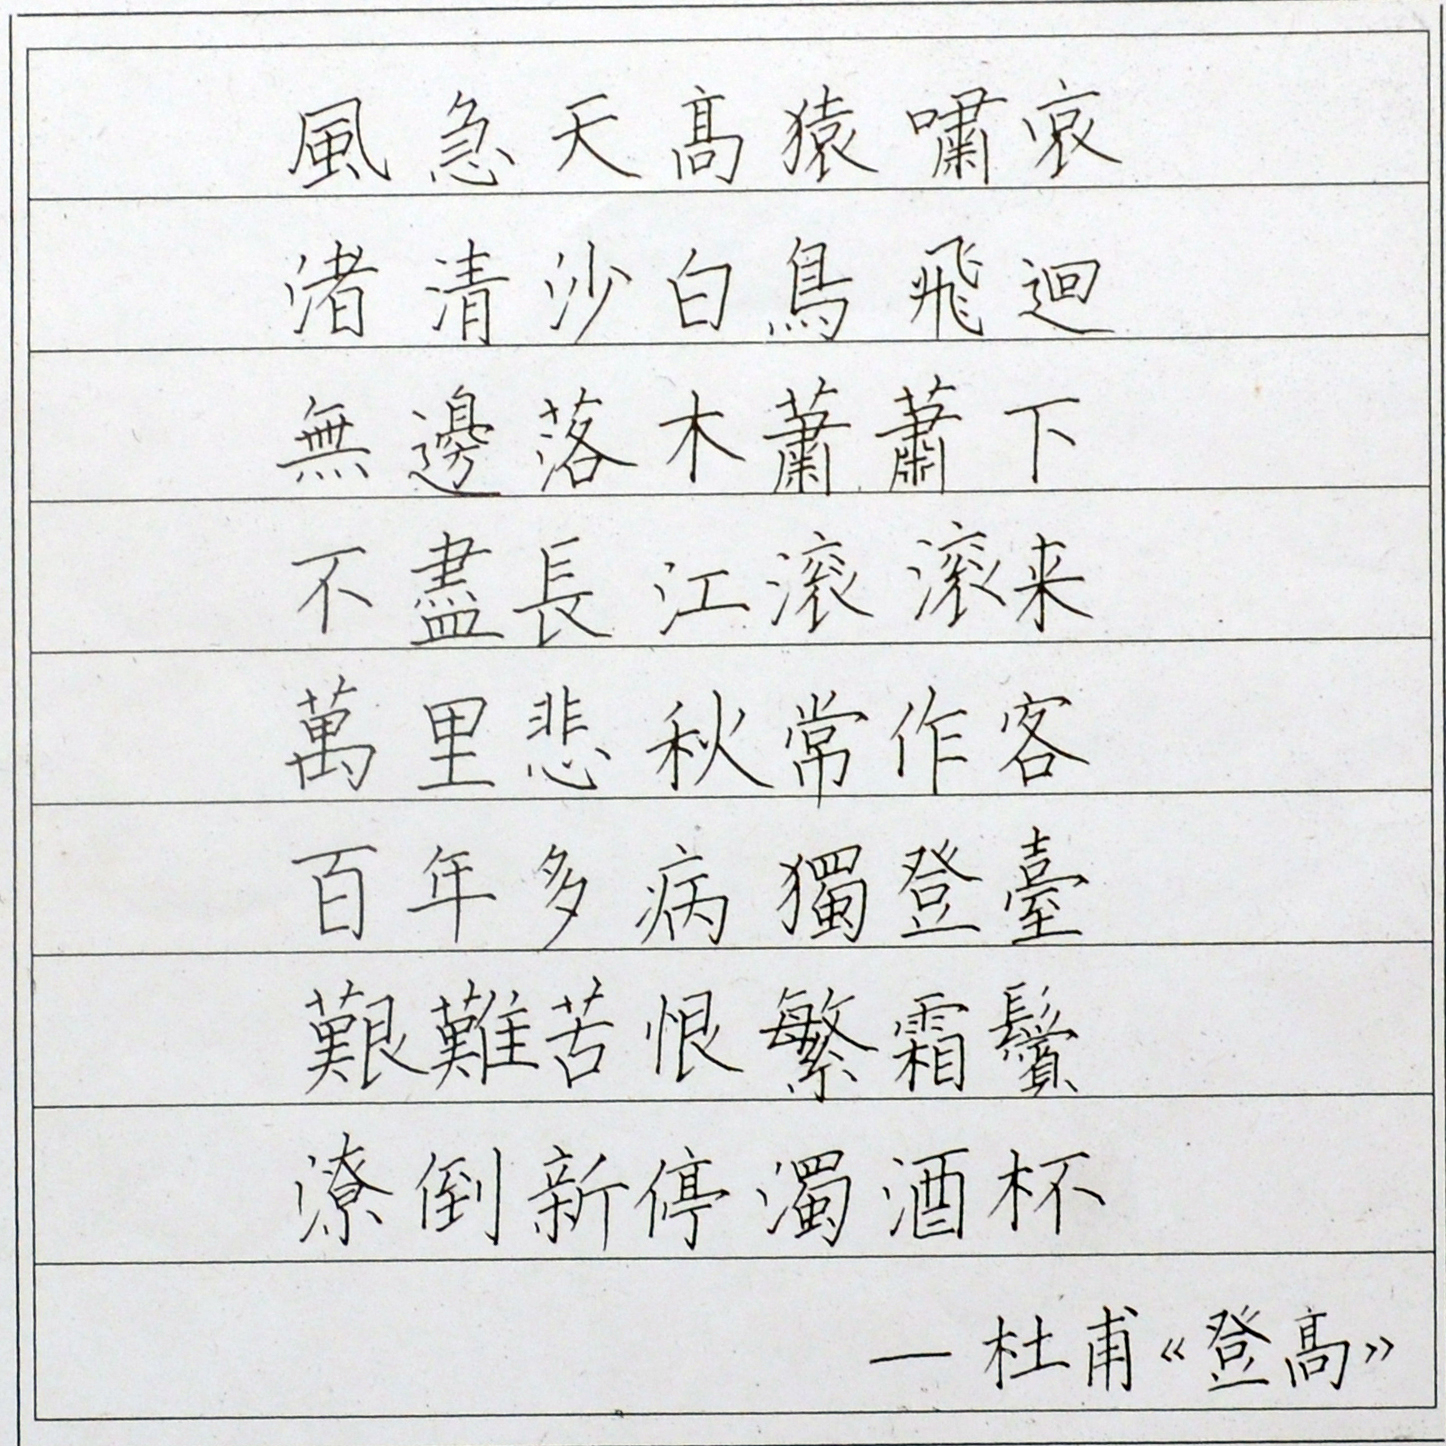 風急天髙猿嘯哀
渚清沙白鳥飛迴
無邊落木蕭蕭下
不盡長江滚滚来
萬里悲秋常作客
百年多病獨登臺
艱難苦恨繁霜鬢
潦倒新停濁酒杯
— 杜甫《登髙》